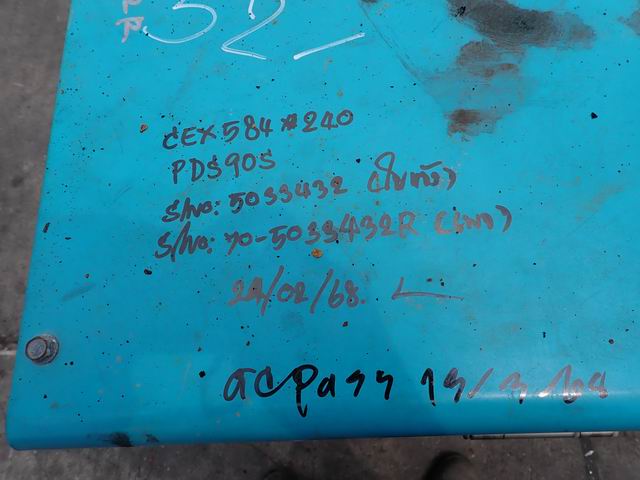 52
CEX584 #240
PDS90S
S/No: 5033432 (ใบกำ)
S/No: 70-5033432R (เพท)
24/02/68.
QCPass 19/3/68